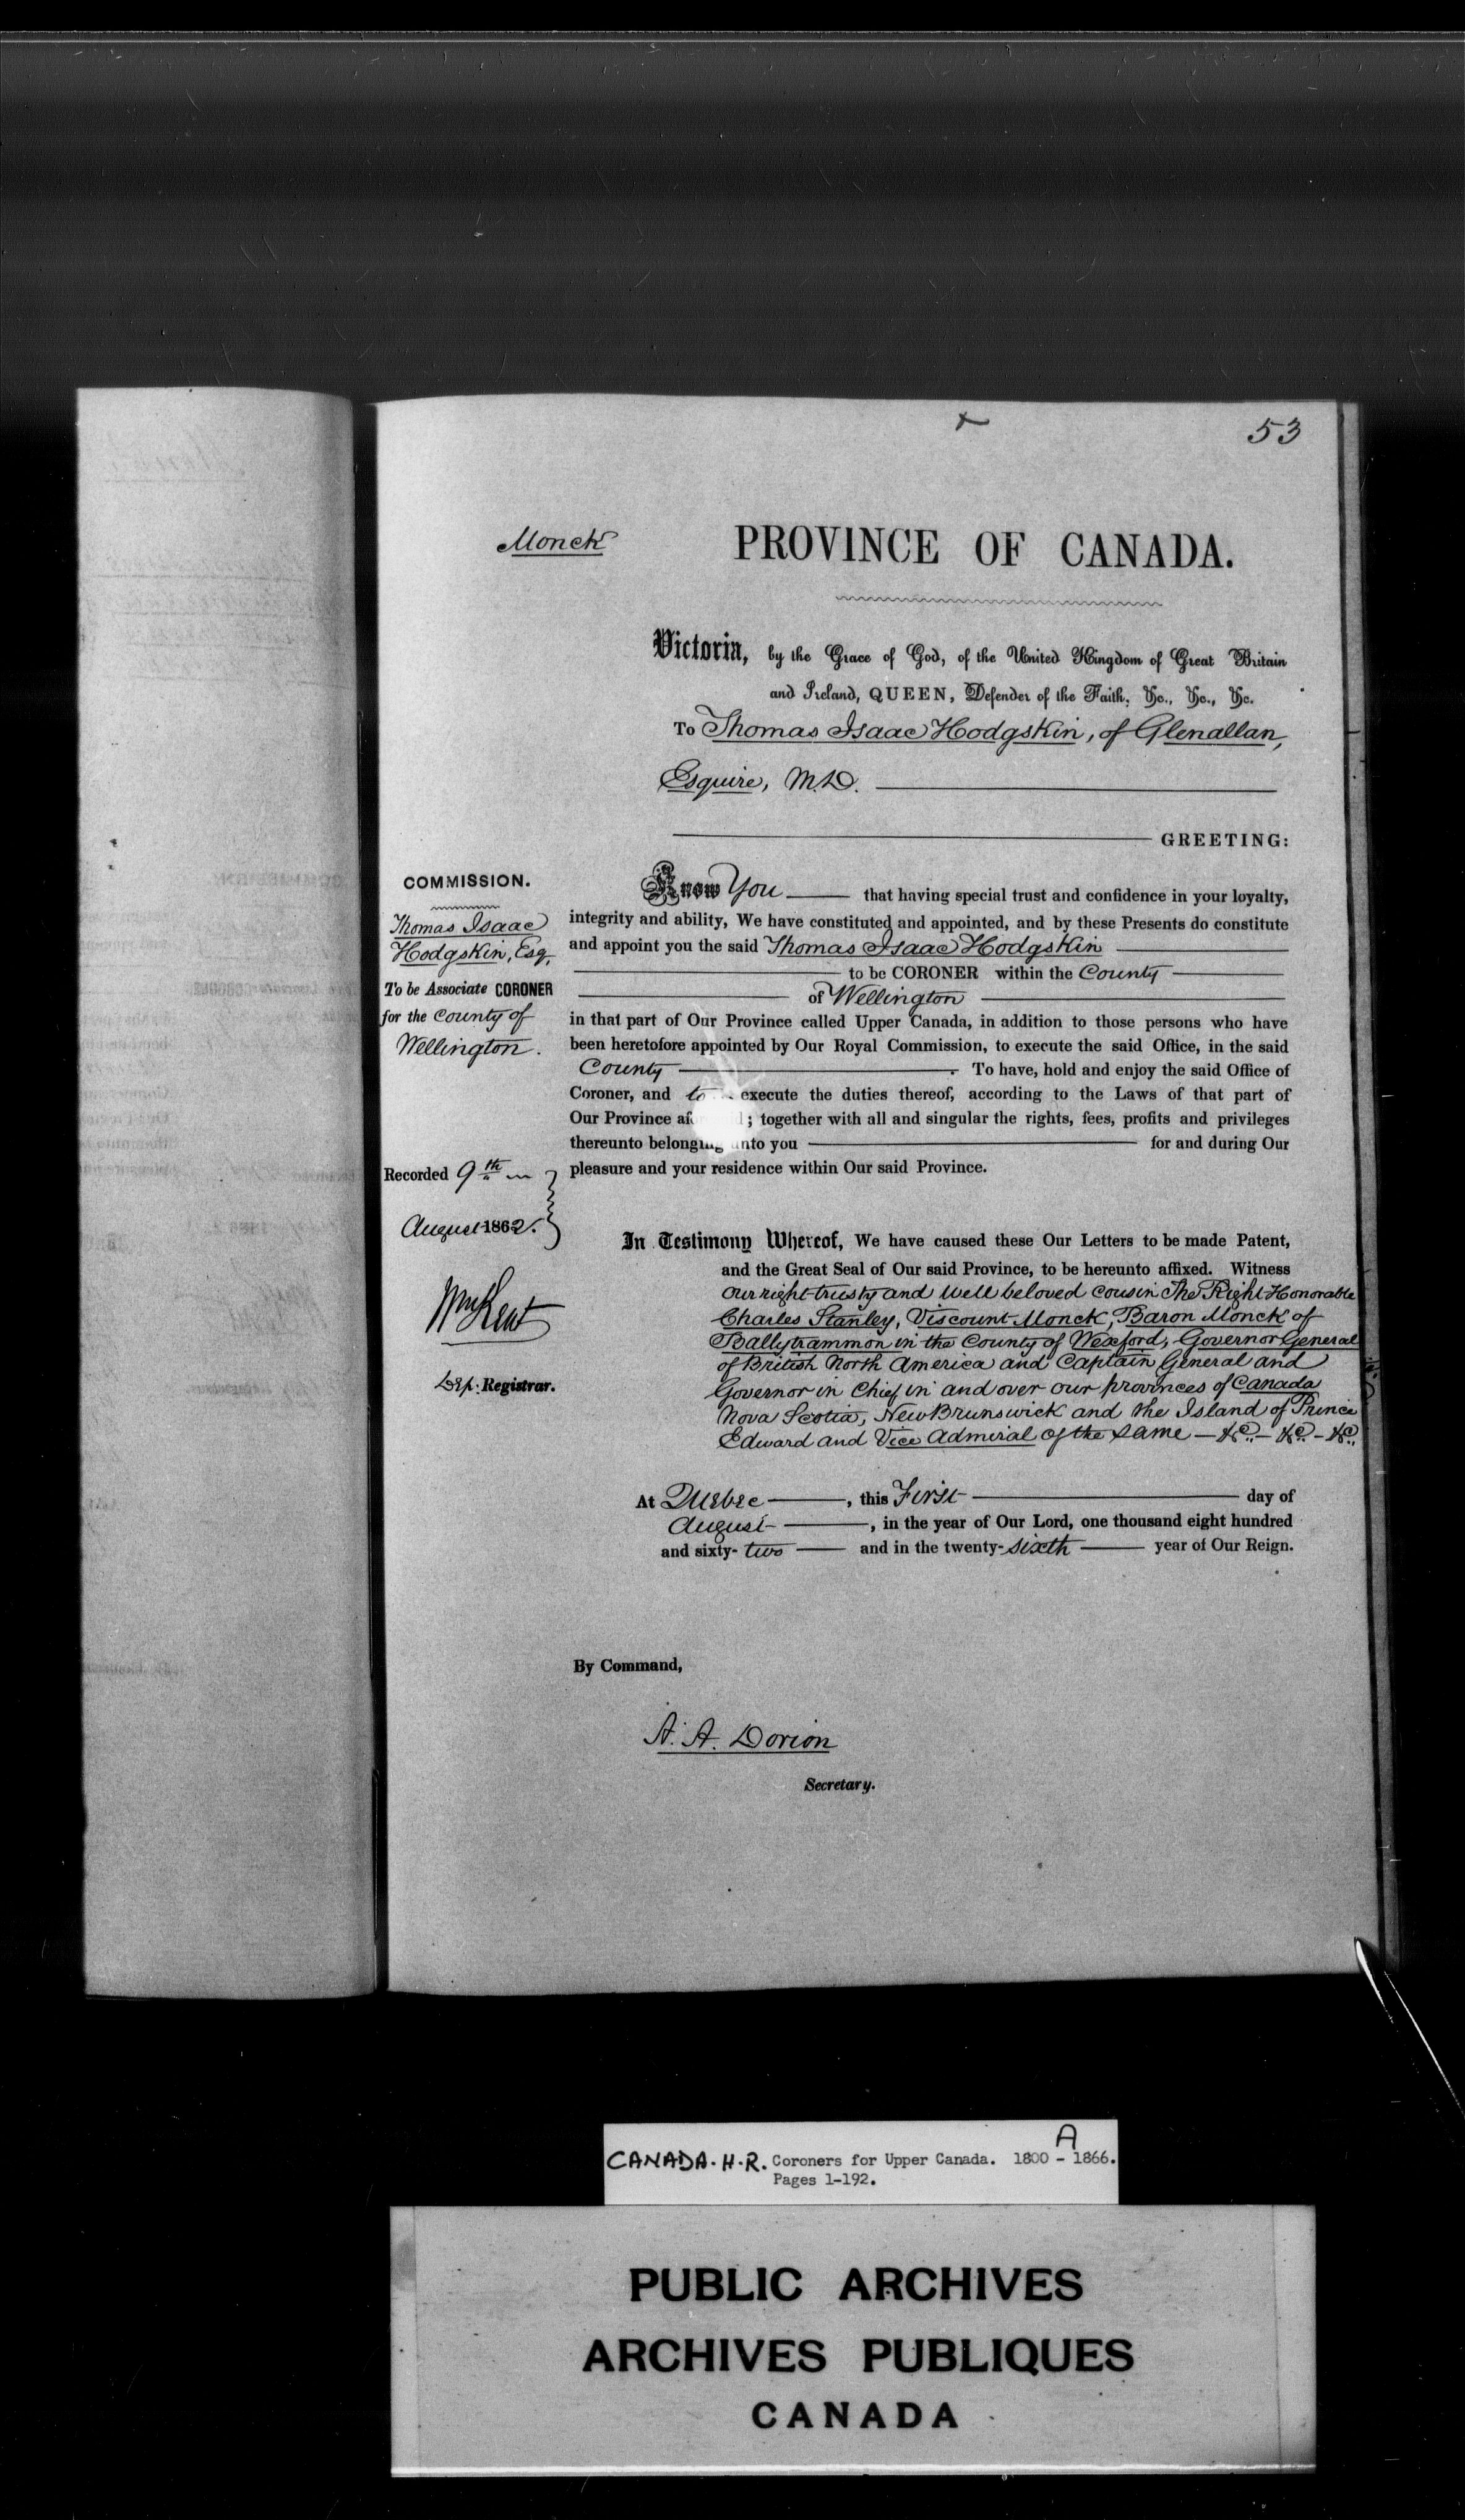 53
Monck
PROVINCE OF CANADA.
Victoria, by the Grace of God, of the United Kingdom of Great Britain
and Ireland, QUEEN, Defender of the Faith, &c., &c., &c.
To Thomas Isaac Hodgskin, of Glenallan,
Esquire, M.D.
GREETING:
COMMISSION.
Thomas Isaac
Hodgskin, Esq.
To be Associate CORONER
for the County of
Wellington.
Know You that having special trust and confidence in your loyalty,
integrity and ability, We have constituted and appointed, and by these Presents do constitute
and appoint you the said Thomas Isaac Hodgskin
to be CORONER within the County
of Wellington
in that part of Our Province called Upper Canada, in addition to those persons who have
been heretofore appointed by Our Royal Commission, to execute the said Office, in the said
County . To have, hold and enjoy the said Office of
Coroner, and to execute the duties thereof, according to the Laws of that part of
Our Province ; together with all and singular the rights, fees, profits and privileges
thereunto belonging unto you for and during Our
pleasure and your residence within Our said Province.
Recorded 9th
August 1862.
Wm Kent
Dep: Registrar.
In Testimony Whereof, We have caused these Our Letters to be made Patent,
and the Great Seal of Our said Province, to be hereunto affixed. Witness
Our right trusty and well beloved Cousin The Right Honorable
Charles Stanley, Viscount Monck, Baron Monck of
Ballytrammon in the County of Wexford, Governor General
of British North America and Captain General and
Governor in Chief in and over our provinces of Canada
Nova Scotia, New Brunswick and the Island of Prince
Edward and Vice Admiral of the same — &c. — &c. — &c.
At Quebec , this First day of
August , in the year of Our Lord, one thousand eight hundred
and sixty-two and in the twenty-sixth year of Our Reign.
By Command,
A. A. Dorion
Secretary.
A
CANADA. H.R. Coroners for Upper Canada. 1800 - 1866.
Pages 1-192.
PUBLIC ARCHIVES
ARCHIVES PUBLIQUES
CANADA